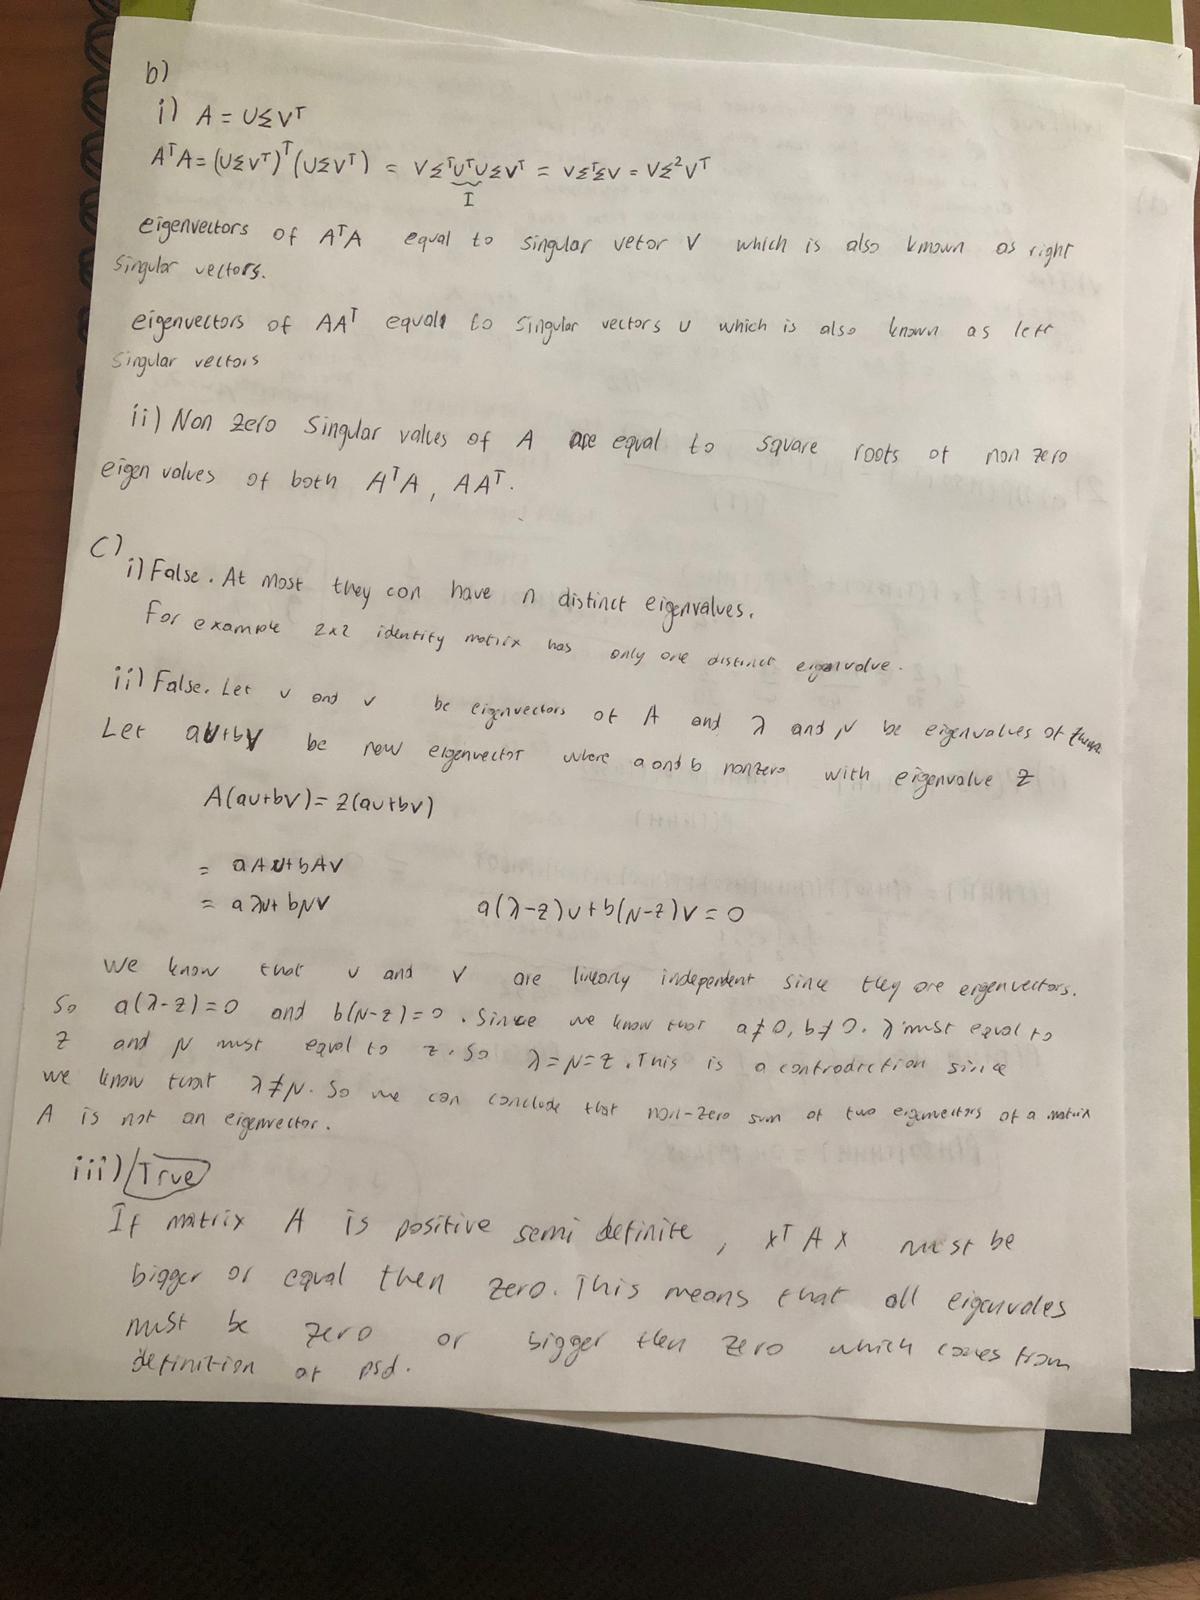 b)
i) A = UΣVᵀ
AᵀA = (UΣVᵀ)ᵀ(UΣVᵀ) = VΣᵀUᵀUΣVᵀ = VΣᵀΣV = VΣ²Vᵀ
I
eigenvectors of AᵀA equal to singular vetor V which is also known as right
singular vectors.
eigenvectors of AAᵀ equal to singular vectors U which is also known as left
singular vectors
ii) Non zero singular values of A are equal to square roots of non zero
eigen values of both AᵀA, AAᵀ.
C)
i) False. At most they can have n distinct eigenvalues.
For example 2x2 identity matrix has only one distinct eigenvalue.
ii) False. Let u and v be eigenvectors of A and λ and N be eigenvalues of
Let au+bv be new eigenvector where a and b nonzero with eigenvalue z
A(au+bv) = z(au+bv)
= aAu+bAv
= aλu+bNv a(λ-z)u+b(N-z)v=0
We know that u and v are linearly independent since they are eigenvectors.
So a(λ-z)=0 and b(N-z)=0. Since we know that a≠0, b≠0. λ must equal to
z and N must equal to z. So λ=N=z. This is a contradiction since
we know that λ≠N. So we can conclude that non-zero sum of two eigenvectors of a matrix
A is not an eigenvector.
iii) True
If matrix A is positive semi definite, xᵀAx must be
bigger or equal then zero. This means that all eigenvales
must be zero or bigger then zero which comes from
definition of psd.